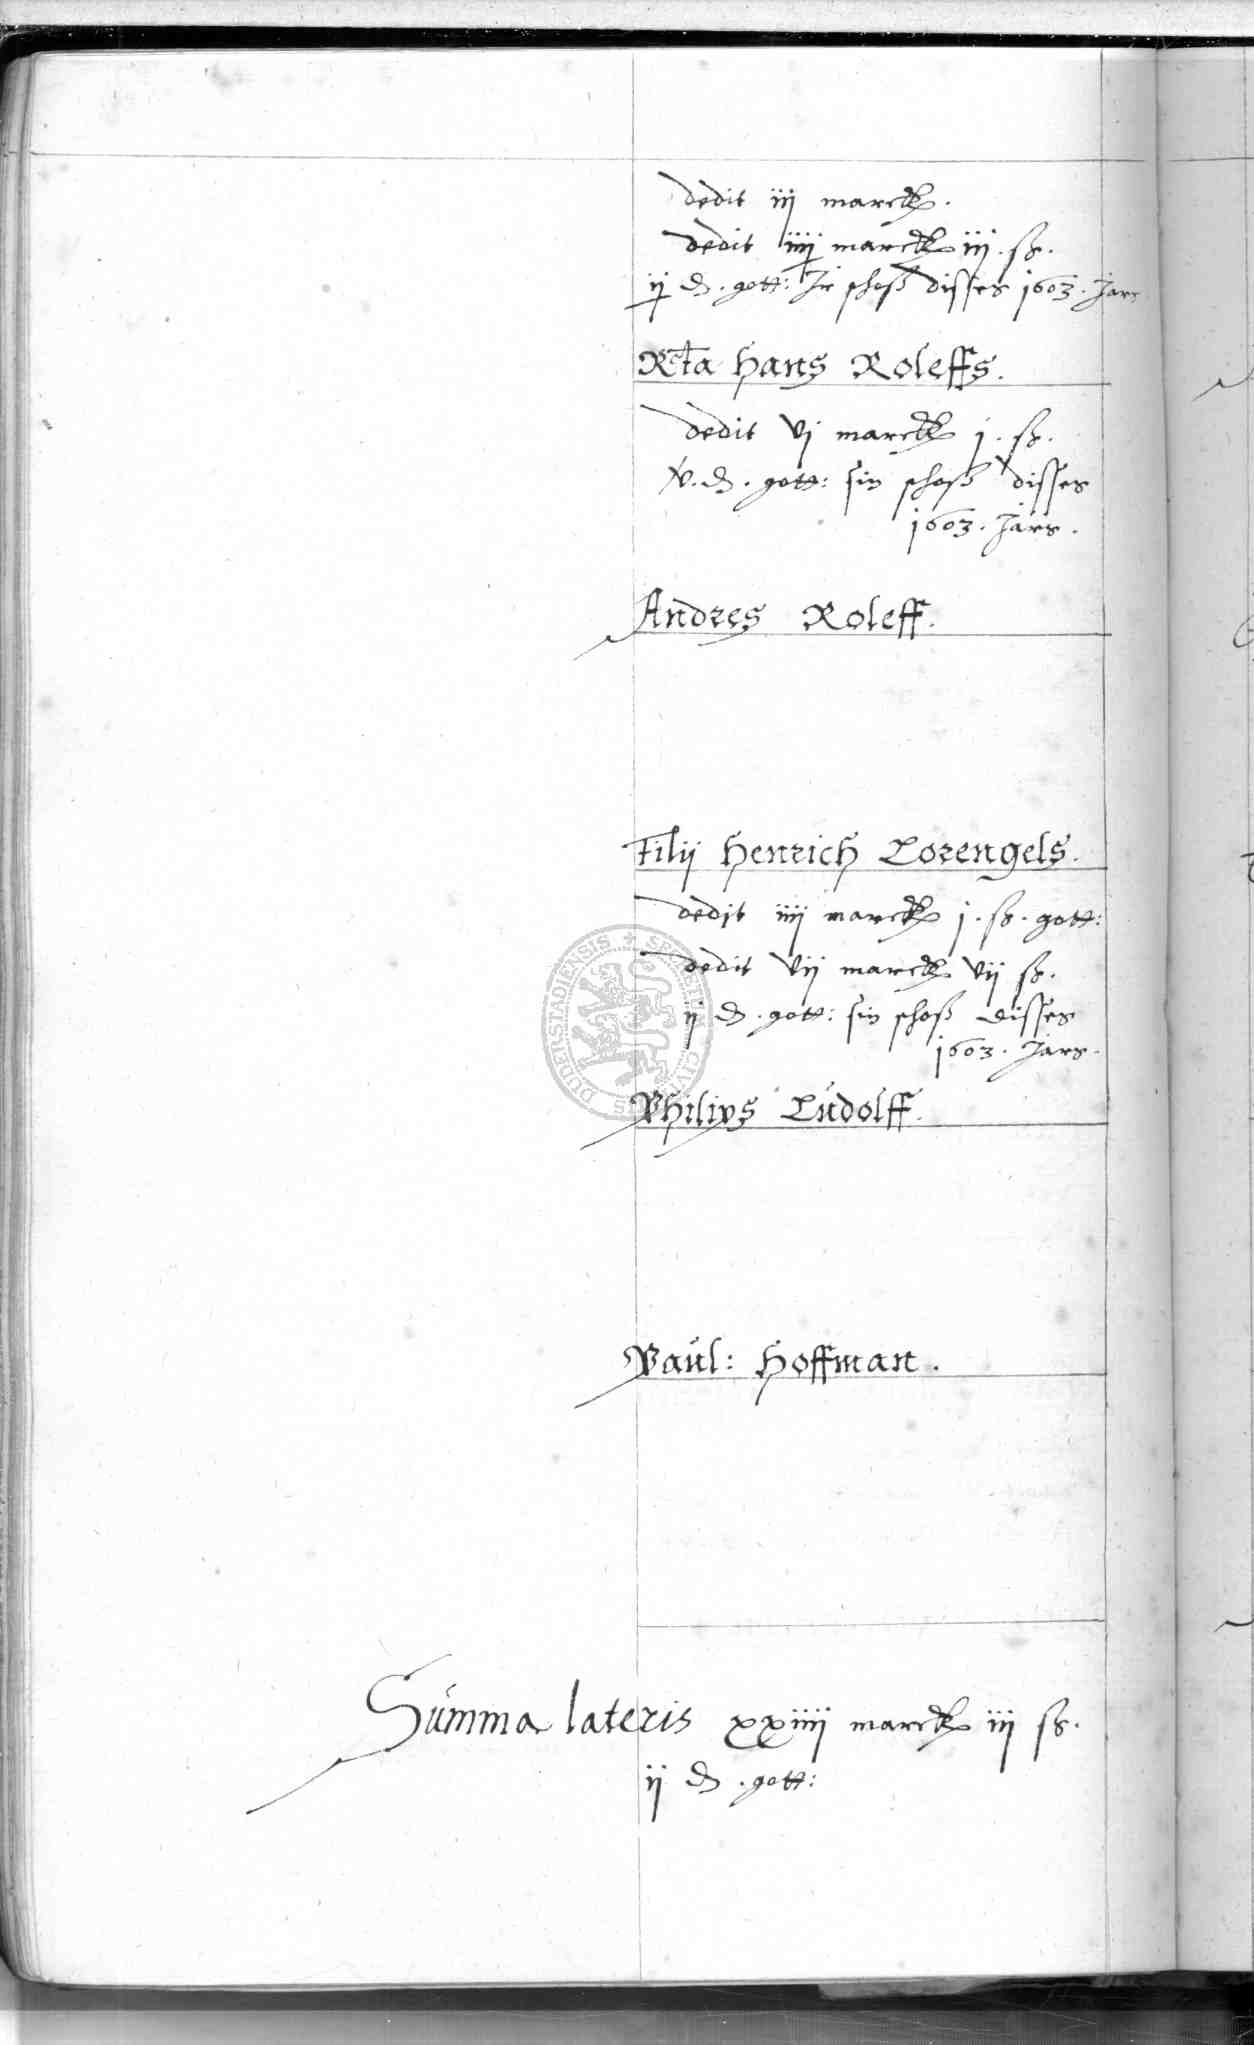 dedit iij marck.
dedit iiij marck iij. ß.
ij d. gott: Jr schoß disses 1603. Jars
Rcta Hans Roleffs.
dedit vj marck j. ß.
v. d. gott: sin schoß disses
1603. Jars.
Andres Roleff.
Filij Henrich Lorengels.
dedit iiij marck j. ß. gott:
dedit vij marck vij ß.
ij d. gott: sin schoß disses
1603. Jars.
Philips Ludolff.
Paul: Hoffman.
Summa lateris xxiiij marck iij ß.
ij d. gott:
DUDERSTADIENSIS